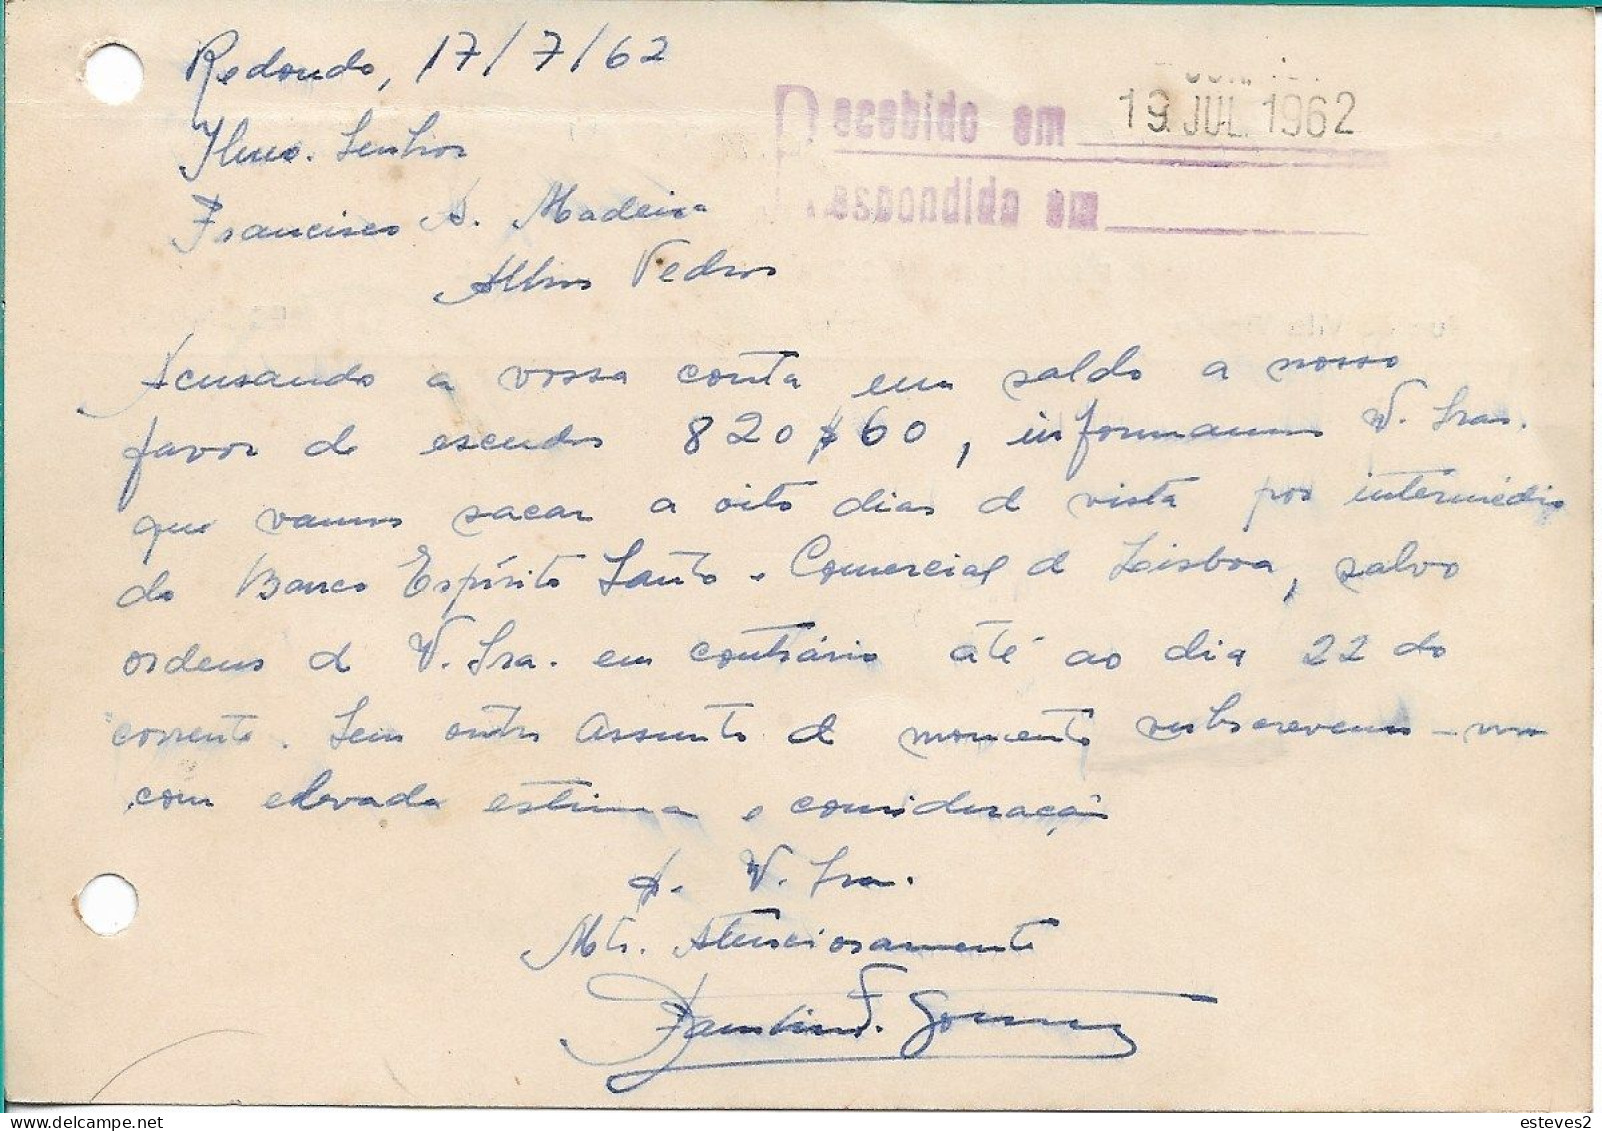 Redondo, 17/7/62
Recebido em 19. JUL. 1962
Ilmo. Senhor
Respondido em
Francisco A. Madeira
Alhos Vedros
Acusando a vossa conta em saldo a nosso
favor de escudos 820$60, informamos V. Sras.
que vamos sacar a oito dias de vista por intermédio
do Banco Espírito Santo e Comercial de Lisboa, salvo
ordens de V. Sra. em contrário até ao dia 22 do
corrente. Sem outro assunto de momento subscrevemo-nos
com elevada estima e consideração
De V. Sra.
Mto. Atenciosamente
F. Gomes
esteves2